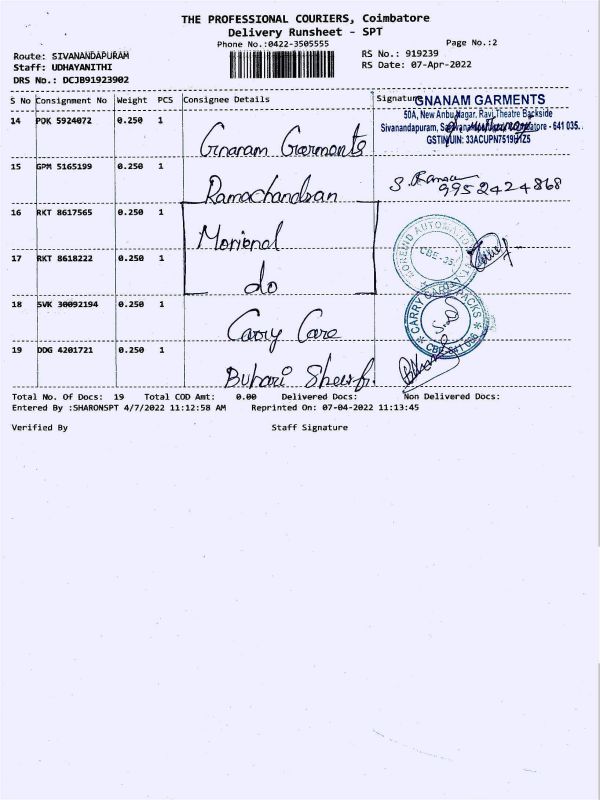 THE PROFESSIONAL COURIERS, Coimbatore
Delivery Runsheet - SPT
Phone No.:0422-3505555
Page No.:2
Route: SIVANANDAPURAM
RS No.: 919239
Staff: UDHAYANITHI
RS Date: 07-Apr-2022
DRS No.: DCJB91923902
S No Consignment No Weight PCS Consignee Details Signature
GNANAM GARMENTS
50A, New Anbu Nagar, Ravi Theatre Backside
Sivanandapuram, Coimbatore - 641 035.
GSTIN/UIN: 33ACUPN7519H1Z5
14 POK 5924072 0.250 1 Gnanam Garments
15 GPM 5165199 0.250 1 Ramachandran S. Raman 9952424868
16 RKT 8617565 0.250 1
17 RKT 8618222 0.250 1 do
AUTOMATION
CBE-35.
18 SVK 30092194 0.250 1 Carry Care
CARRY CARE PACKS
CBE-641 006
19 DDG 4201721 0.250 1 Buhari
Total No. Of Docs: 19 Total COD Amt: 0.00 Delivered Docs: Non Delivered Docs:
Entered By :SHARONSPT 4/7/2022 11:12:58 AM Reprinted On: 07-04-2022 11:13:45
Verified By Staff Signature